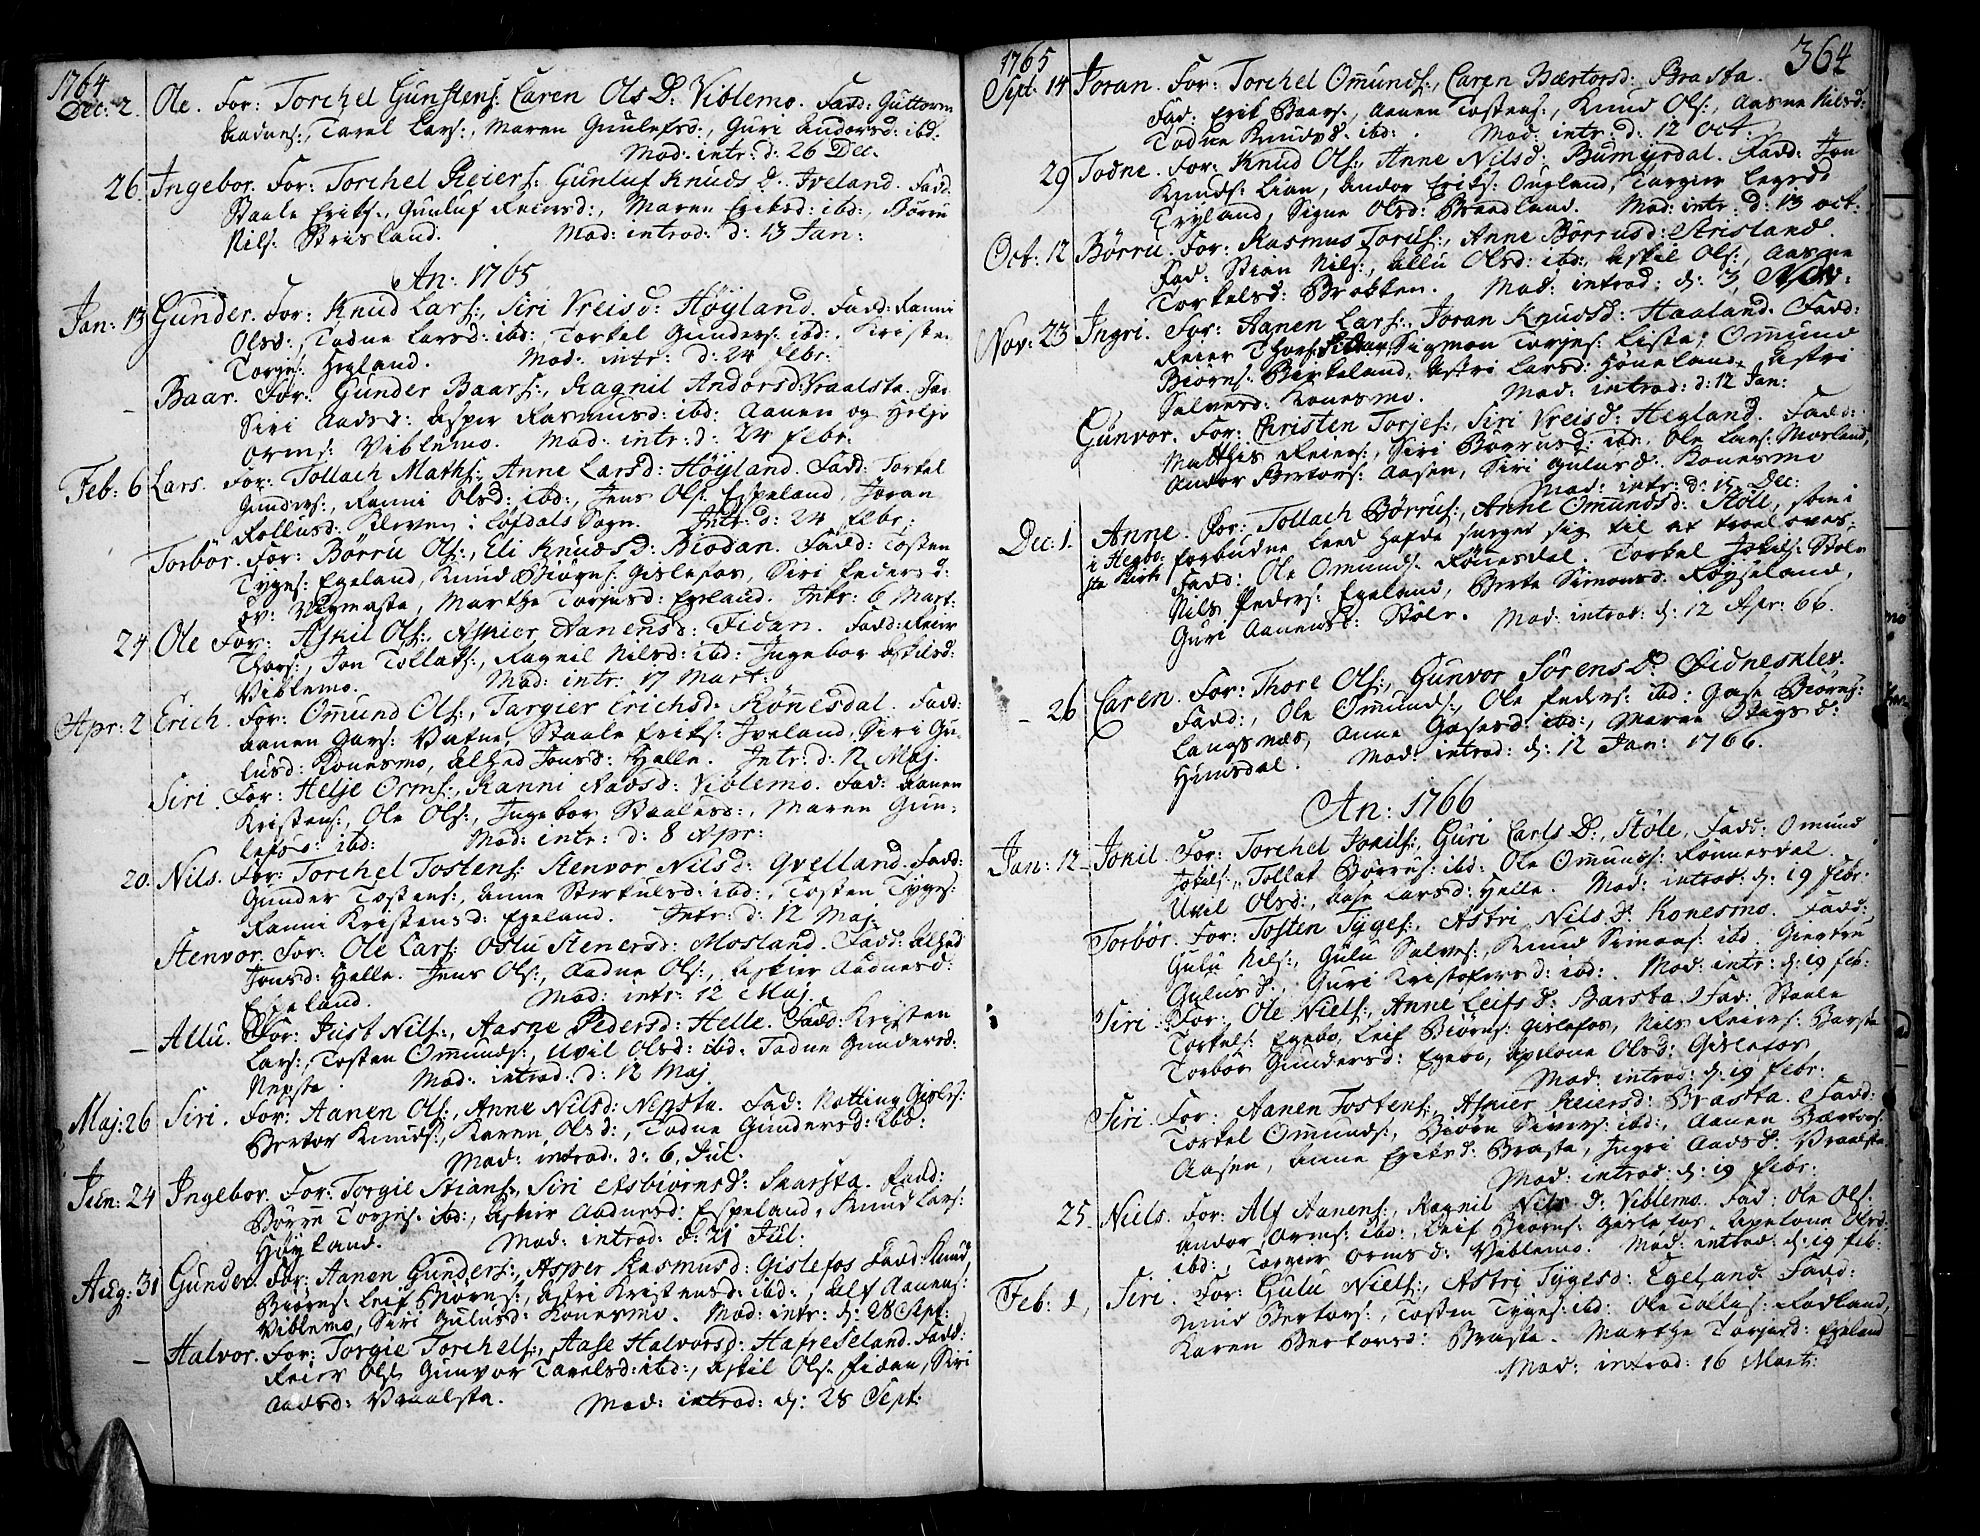 1764
Dec: 2. Ole. For: Torchel Gunstens: Caren Ols D: Viblemo. Fadd: Guttorm
Aadnes:, Tarel Lars:, Maren Gunlefsd:, Guri Andorsd: ibd:
Mod: intr: d: 26 Dec.
26. Ingebor. For: Torchel Reiers: Gunluf Knuds D: Iveland. Fadd:
Staale Eriks:, Gunluf Reiersd:, Maren Eriksd: ibd:, Börru
Nils: Strisland. Mod: introd: d: 13 Jan:
An: 1765
Jan: 13 Gunder. For: Knud Lars:, Siri Vreisd: Höyland. Fadd: Ranni
Olsd:, Todne Larsd: ibd:, Torkel Gunders: ibd:, Kristen
Torjes: Hegland. Mod: intr: d: 24 Febr:
– Baar. For: Gunder Baars:, Ragnil Andorsd: Vraalsta. Fad:
Siri Aadsd: Asper Rasmusd: ibd: Aanen og Helje
Orms: Viblemo. Mod: intr: d: 24 Febr:
Feb: 6 Lars. For: Tollach Maths:, Anne Larsd: Höyland. Fadd: Torkel
Gunders:, Ranni Olsd: ibd:, Jens Ols: Espeland, Joran
Rollusd: Kleven i Löfdals Sogn. Intr: d: 24 Febr:
Torbör. For: Börru Ols:, Eli Knudsd: Biodan. Fadd: Tosten
Tyges: Egeland, Knud Biörns: Gislefos, Siri Peders d:
Vigmosta, Marthe Torjusd: Egeland. Intr: 6 Mart:
24 Ole For: Askil Ols:, Askier Aanensd: Fidan. Fadd: Reier
Thors:, Jon Tollaks:, Ragnil Nilsd: ibd: Ingebor Askilsd:
Viblemo. Mod: intr: 17 Mart:
Apr: 2 Erich. For: Omund Ols:, Targier Erichsd: Rönesdal. Fadd:
Aanen Gars: Vatne, Staale Eriks: Iveland, Siri Gu-
lusd: Konesmo, Alhed Jonsd: Helle. Intr: d: 12 Maj.
Siri. For: Helje Orms:, Ranni Aadsd: Viblemo. Fad: Aanen
Kristens:, Ole Ols:, Ingebor Staalesd:, Maren Gun-
lefsd: ibd: Mod: intr: d: 8 Apr:
20. Nils. For: Torchel Tostens: Stenvor Nilsd: Qvelland. Fadd:
Gunder Tostens:, Anne Sterkulsd: ibd:, Tosten Tyges:
Ranni Kristensd: Egeland. Intr: d: 12 Maj.
Stenvor. For: Ole Lars: Oslu Stenersd: Mosland. Fadd: Alhed
Jonsd: Helle. Jens Ols:, Aadne Ols:, Askier Audnesd:
Espeland. Mod: intr: 12 Maj.
– Allu. For: Just Nils:, Aasne Pedersd: Helle. Fadd: Kristen
Lars:, Tosten Omunds:, Uvil Olsd: ibd: Todne Gundersd:
Nepsta. Mod: introd: d: 12 Maj.
Maj: 26 Siri. For: Aanen Ols:, Anne Nilsd: Nepsta. Fad: Notting Gisles:
Bertor Knuds:, Karen Olsd:, Todne Gundersd: ibd:
Mod: introd: d: 6. Jul:
Jun: 24 Ingebor. For: Torgie Stians:, Siri Asbiörnsd: Skarsta. Fadd:
Börru Torjes: ibd:, Askier Aadnesd: Espeland, Knud Lars:
Höyland. Mod: introd: d: 21 Jul:
Aug: 31 Gunder. For: Aanen Gunders:, Asper Rasmusd: Gislefos Fadd: Knud
Biörns: Leif Biörns:, Astri Kristensd: ibd:, Alf Aanens:
Viblemo, Siri Gulusd: Konesmo. Mod: intr: d: 28 Sept:
– Halvor. For: Torgie Torchels:, Aase Halvorsd: Hafredeland. Fadd:
Reier Ols: Gunvor Tarelsd: ibd:, Askil Ols: Fidan, Siri
Aadsd: Vraalsta. Mod: introd: d: 28 Sept:
364
1765
Sept: 14 Joran. For: Torchel Omunds:, Caren Bærtorsd: Brasta.
Fad: Erik Baars:, Aanen Tostens:, Knud Ols:, Aasne Nilsd:
Todne Knudsd: ibd:. Mod: intr: d: 12 Oct.
29 Todne. For: Knud Ols:, Anne Nilsd: Bumyrdal. Fadd: Jon
Knuds: Lian, Andor Eriks: Ougland, Torgier
Tryland, Signe Olsd: Brædland. Mod: intr: d: 13 oct:
Oct: 12 Börru. For: Rasmus Torus:, Anne Börrusd: Strisland.
Fad: Stian Nils:, Allu Olsd: ibd:, Askil Ols:, Aasne
Torkelsd: Brokken. Mod: introd: d: 3 Nov:
Nov: 23 Ingri. For: Aanen Lars:, Joran Knudsd: Haaland. Fadd:
Reier Thors: Sigmon Torjes: Lista, Omund
Biörns: Birkeland, Astri Larsd: Höneland, Astri
Salvesd: Konesmo. Mod: introd: d: 12 Jan:
Gunvor. For: Christen Torjes:, Siri Vreisd: Hegland. Fadd:
Matthis Reiers:, Siri Börrusd: ibd:, Ole Lars: Mosland,
Andor Bertors: Aasen, Siri Gulusd: Konesmo
Mod: intr: d: 15 Dec:
Dec: 1. Anne. For: Tollach Börrus:, Anne Omundsd: Stöle, som i
i Aegbo- forbudne Leed hafde surget sig til at troeloves.
sta Kirk Fadd: Ole Omunds: Rönesdal. Torkel Jokils: Stöle
Nils Peders: Egeland, Berte Simonsd: Röyseland,
Guri Aanensd: Stöle. Mod: introd: d: 12 Apr: 66.
– 26 Caren. For: Thore Ols:, Gunvor Sörens D: Eidnesklev.
Fadd:, Ole Omunds:, Ole Peders: ibd: Gase Biörns:
Langsnæs, Anne Gasesd: ibd:, Maren Stigsd:
Himsdal. Mod: introd: d: 12 Jan: 1766.
An: 1766
Jan: 12 – Jokil. For: Torchel Jokils:, Guri Carls D:, Stöle, Fadd: Omund
Jokils:, Tollak Börrus: ibd: Ole Omunds: Rönnesdal.
Uvil Olsd:, Aase Larsd: Helle. Mod: introd: d: 19 Febr:
Torbör. For: Tosten Tyges:, Astri Nils D: Konesmo. Fadd:
Gulu Nils:, Gulu Salves:, Knud Simons: ibd. Giertru
Gulusd:, Guri Kristofersd: ibd:. Mod: intr: d: 19 Feb:
Siri. For: Ole Niels:, Anne Leifs D: Barsta. Fad: Staale
Torkels: Egebo, Leif Biörns: Gislefos, Nils Reiers: Barsta
Torbör Gundersd: Egebo, Apelone Olsd: Gislefos
Mod: introd: d: 19 Febr:
Siri For: Aanen Tostens:, Askier Reiersd: Brasta. Fadd:
Torkel Omunds:, Biörn Sivers: ibd:, Aanen Bærtors:
Aasen, Anne Eriksd: Brasta, Ingri Aadsd: Vraalsta
Mod: introd: d: 19 Febr:
25. Niels. For: Alf Aanens:, Ragnil Nils D: Viblemo. Fad: Ole Ols:
Andor Orms: ibd: Leif Biörns: Gislefos. Apelone Olsd:
ibd:, Torgier Ormsd: Viblemo. Mod: introd: d: 19 Feb:
Feb: 1 Siri. For: Gulu Niels:, Astri Tygesd: Egeland. Fadd:
Knud Bertors:, Tosten Tyges: ibd: Ole Tollus: Rodland,
Karen Bertorsd: Brasta. Marthe Torjusd: Egeland
Mod: introd: 16 Mart: